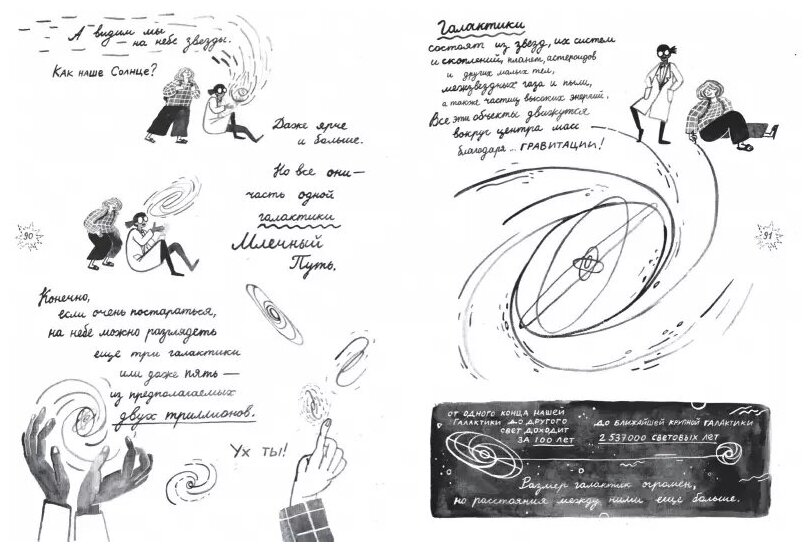 А видим мы
— на небе звезды.
Как наше Солнце?
Даже ярче
и больше.
Но все они —
часть одной
галактики
Млечный
Путь.
90
Конечно,
если очень постараться,
на небе можно разглядеть
еще три галактики
или даже пять —
из предполагаемых
двух триллионов.
Ух ты!
Галактики
состоят из звезд, их систем
и скоплений, планет, астероидов
и других малых тел,
межзвездных газа и пыли,
а также частиц высоких энергий.
Все эти объекты движутся
вокруг центра масс
благодаря... ГРАВИТАЦИИ!
91
ОТ ОДНОГО КОНЦА НАШЕЙ
ГАЛАКТИКИ ДО ДРУГОГО
СВЕТ ДОХОДИТ
ЗА 100 ЛЕТ
ДО БЛИЖАЙШЕЙ КРУПНОЙ ГАЛАКТИКИ
2 537 000 СВЕТОВЫХ ЛЕТ
Размер галактик огромен,
но расстояния между ними еще больше.